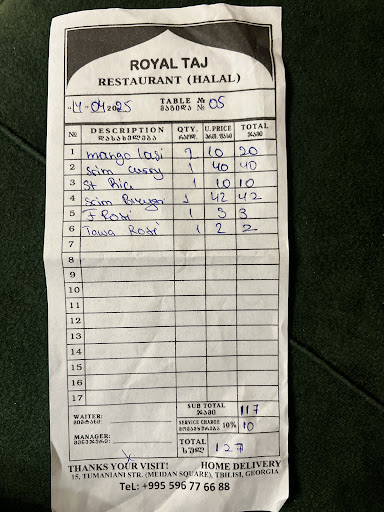 ROYAL TAJ
RESTAURANT (HALAL)
14-04-2025 TABLE № 05
მაგიდა №
№ DESCRIPTION QTY. U.PRICE TOTAL
დასახელება რაოდ. ერთ. ფასი ჯამი
1 mango lasi 2 10 20
2 srim curry 1 40 40
3 St Rice 1 10 10
4 srim Biryani 1 42 42
5 F Roti 1 3 3
6 Tawa Roti 1 2 2
7
8
9
10
11
12
13
14
15
16
17
WAITER: SUB TOTAL 117
მიმტანი ჯამი
SERVICE CHARGE 10% 10
მომსახურება
MANAGER:
მენეჯერი: TOTAL 127
სულ
THANKS YOUR VISIT! HOME DELIVERY
15, TUMANIANI STR. (MEIDAN SQUARE), TBILISI, GEORGIA
TeL: +995 596 77 66 88